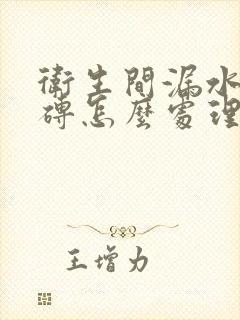 衛生間漏水
磚怎麼處理
王增力